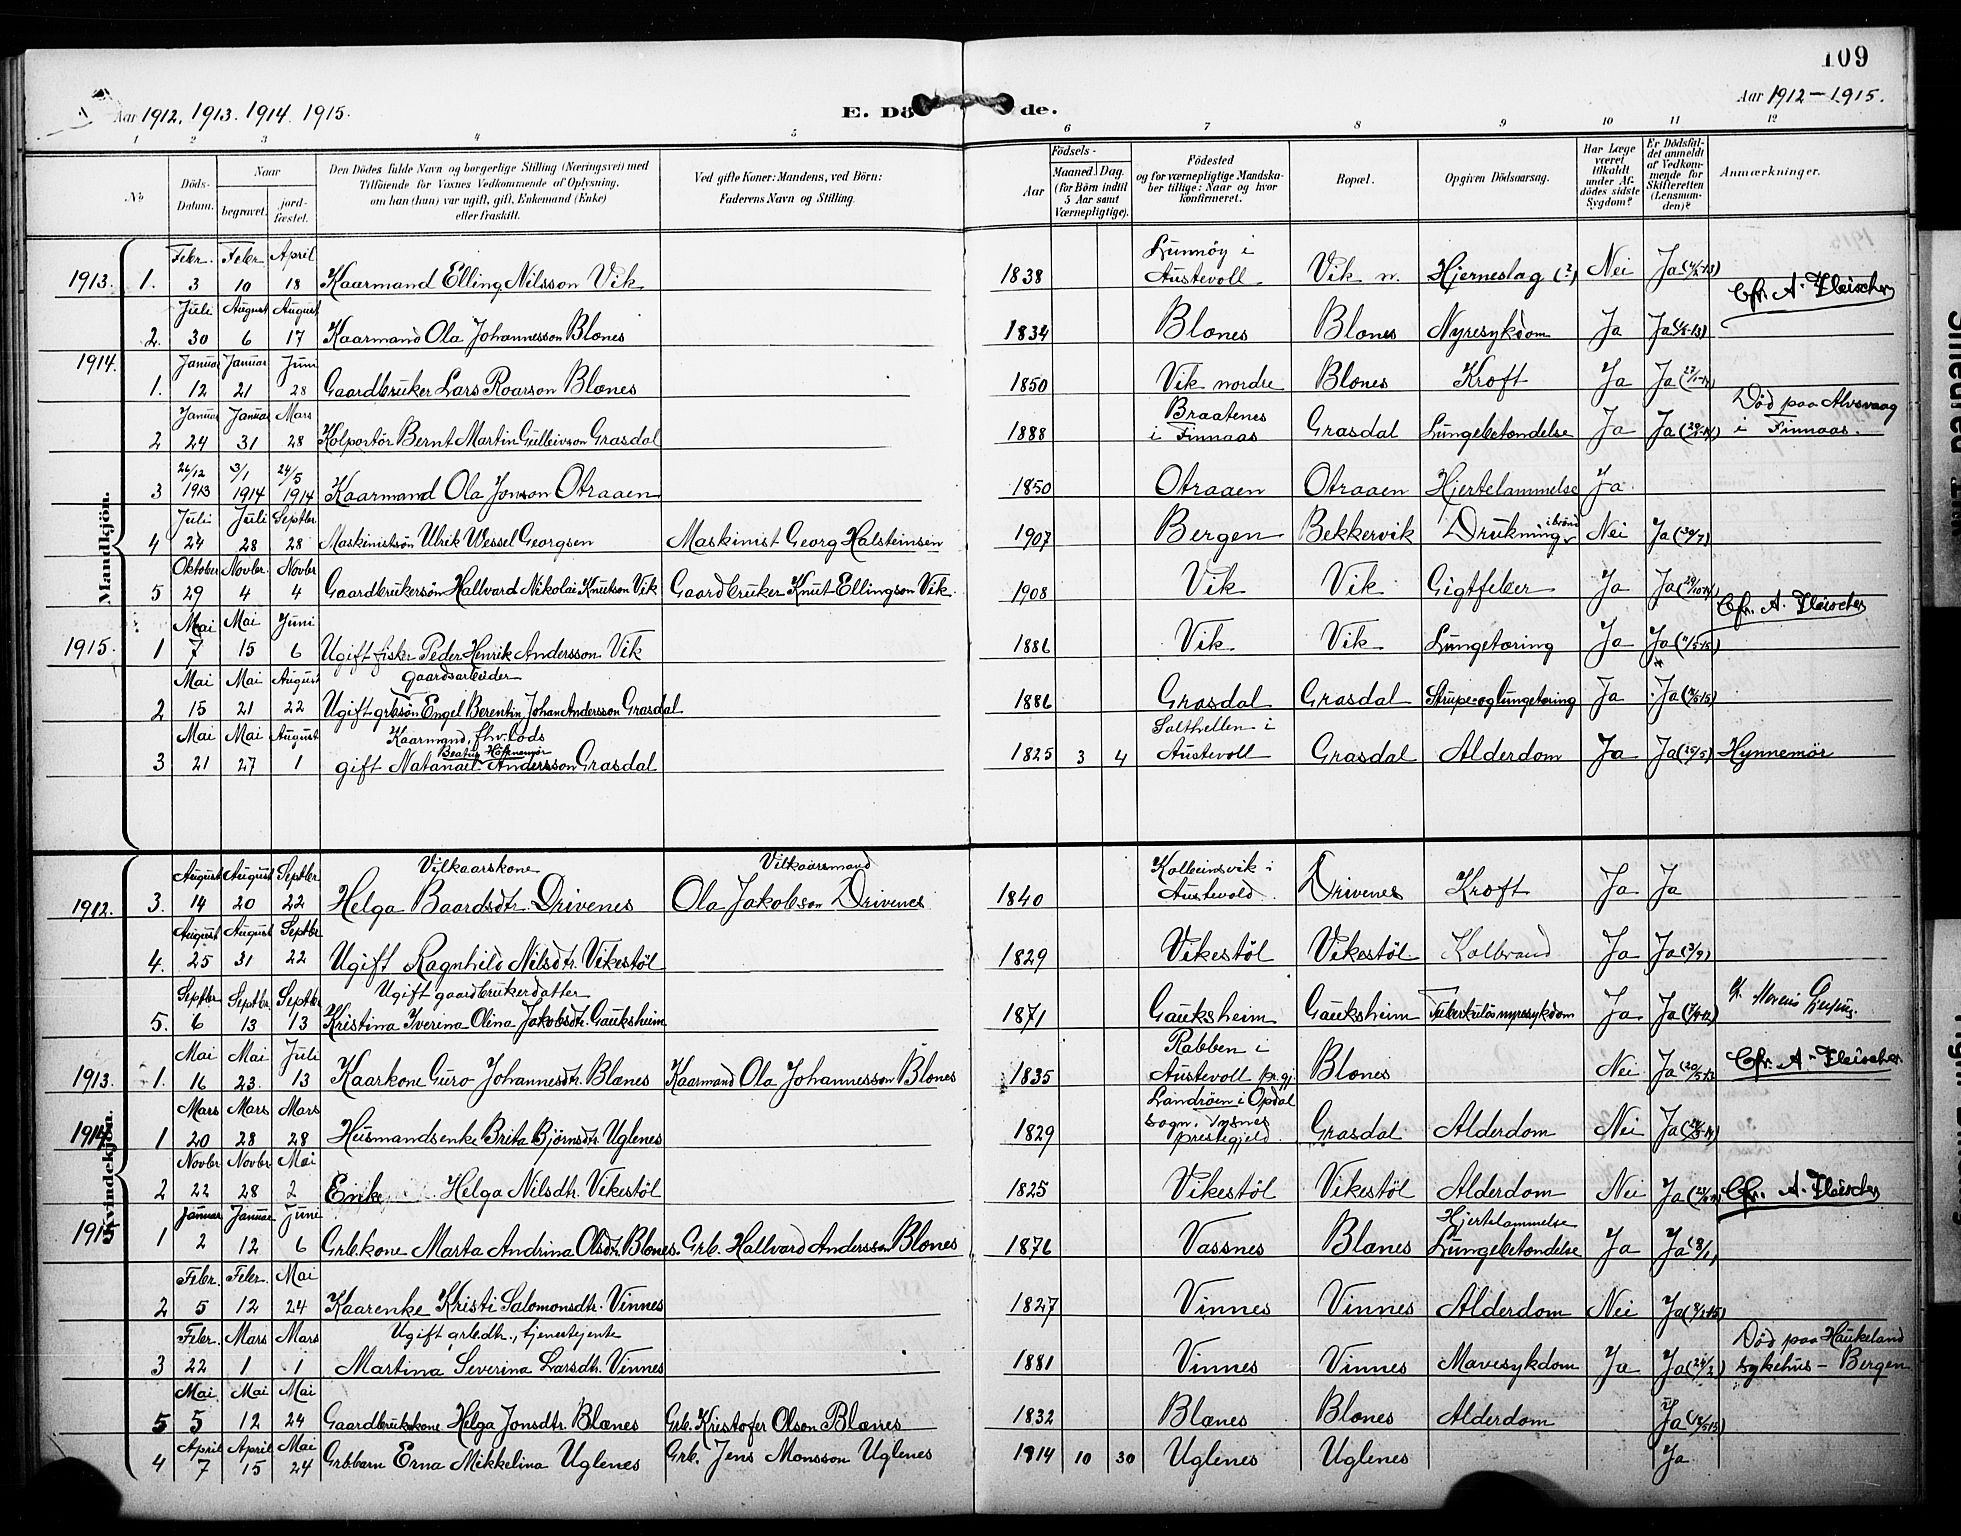 109
Aar 1912. 1913. 1914. 1915.
E. Dö de.
Aar 1912-1915.
1 2 3 4 5 6 7 8 9 10 11 12
No
Döds-Datum.
Naar
begravet.
jord-fæstet.
Den Dödes fulde Navn og borgerlige Stilling (Næringsvei) med
Tilföiende for Voxnes Vedkommende af Oplysning,
om han (hun) var ugift, gift, Enkemand (Enke)
eller fraskilt.
Ved gifte Koner: Mandens, ved Börn:
Faderens Navn og Stilling.
Födsels-
Aar
Maaned. Dag.
(for Börn indtil
5 Aar samt
Værnepligtige).
Födested
og for værnepligtige Mandska-
ber tillige: Naar og hvor
konfirmeret.
Bopæl.
Opgiven Dödsaarsag.
Har Læge
været
tilkaldt
under Af-
dödes sidste
Sygdom?
Er Dödsfal-
det anmeldt
af Vedkom-
mende for
Skifteretten
(Lensman-
den)?
Anmærkninger.
Mandkjön.
1913. 1. Febr. 3 Febr. 10 April 18 Kaarmand Elling Nilsson Vik 1838 Lunnöy i Austevoll Vik n. Hjerneslag (?) Nei Ja (4/2-13)
Cfr. A. Fleischer
2. Juli 30 August 6 August 17 Kaarmand Ola Johannesson Blænes 1834 Blænes Blænes Nyresykdom Ja Ja
1914. 1. Januar 12 Januar 21 Juni 28 Gaardbruker Lars Roarson Blænes 1850 Vik nordre Blænes Kræft Ja Ja
2 Januar 24 Januar 31 Mars 28 Kolportör Bernt Martin Gulleivson Grasdal 1888 Braatenes i Finnaas Grasdal Lungebetændelse Ja Ja Död paa Alvsvaag i Finnaas.
3 26/12 1913 3/1 1914 24/5 1914 Kaarmand Ola Jonson Otraaen 1850 Otraaen Otraaen Hjertelammelse Ja
4 Juli 24 Juli 28 Septbr 28 Maskinistsön Ulrik Wessel Georgsen Maskinist Georg Halsteinsen 1907 Bergen Bekkervik Drukning i brönd Nei Ja (30/7)
5 Oktober 29 Novbr. 4 Novbr 4 Gaardbrukersön Hallvard Nikolai Knutson Vik Gaardbruker Knut Ellingson Vik 1908 Vik Vik Gigtfeber Ja Ja (29/10-14)
Cfr. A. Fleischer
1915. 1 Mai 7 Mai 15 Juni 6 Ugift fisker Peder Henrik Andersson Vik 1886 Vik Vik Lungetæring Ja Ja (11/5-15)
2 Mai 15 Mai 21 August 22 gaardsarbeider Ugift grbsön Engel Berentin Johan Andersson Grasdal 1886 Grasdal Grasdal Strupe- og lungetæring Ja Ja
3 Mai 21 Mai 27 August 1 Kaarmand, fhv. lods gift Natanael Beatus Höfnemör Andersson Grasdal 1825 3 4 Salthellen i Austevoll Grasdal Alderdom Ja Ja (25/5) Hynnemör
Kvindekjön.
1912. 3. August 14 August 20 Septbr 22 Vilkaarskone Helga Baardsdtr. Drivenes Vilkaarsmand Ola Jakobson Drivenes 1840 Kolbeinsvik i Austevold Drivenes Kræft Ja Ja
4. August 25 August 31 Septbr 22 Ugift Ragnhild Nilsdtr. Vikestöl 1829 Vikestöl Vikestöl Kolbrand Ja Ja (3/9)
5. Septbr 6 Septbr. 13 Septbr 13 Ugift gaardbrukerdatter Kristina Iverina Olina Jakobsdtr. Gauksheim 1871 Gauksheim Gauksheim Tuberkulös nyresykdom Ja Ja
1913. 1. Mai 16 Mai 23. Juli 13 Kaarkone Guro Johannesdtr. Blænes Kaarmand Ola Johannesson Blænes 1835 Rabben i Austevoll pr.gj. Blænes Nei Ja (20/5-13
Cfr. A. Fleischer
1914. 1 Mars 20 Mars 28 Mars 28 Husmandsenke Brita Björnsdtr. Uglenes 1829 Landröen i Opdal sogn, Tysnes prestegjeld. Grasdal Alderdom Nei Ja
2 Novbr 22 Novbr 28 Mai 2 Enke Helga Nilsdtr. Vikestöl 1825 Vikestöl Vikestöl Alderdom Nei Ja
Cfr. A. Fleischer
191 1 Januar 2 Januar 12 Juni 6 Grb.kone Marta Andrina Olsdtr. Blænes. Grb. Hallvard Andersson Blænes 1876 Vassnes Blænes Hjertelammelse Lungebetændelse Ja Ja (8/1)
2 Febr. 5 Febr. 12 Mai 24 Kaarenke Kristi Salomonsdtr. Vinnes 1827 Vinnes Vinnes Alderdom Nei Ja (8/2-15)
3 Febr. 22 Mars 1 Mars 1 Ugift grb.dtr., tjenestejente Martina Severina Larsdtr. Vinnes 1881 Vinnes Vinnes Mavesykdom Ja Ja (24/2) Död paa Haukeland sykehus - Bergen
5 Mai 5 Mai 12 Mai 24 Gaardbrukskone Helga Jonsdtr. Blænes Grb. Kristofer Olson Blænes 1832 Blænes Blænes Alderdom Ja
4 April 7 April 15 Mai 24 Grb.barn Erna Mikkelina Uglenes Grb. Jens Monsson Uglenes 1914 10 30 Uglenes Uglenes Ja